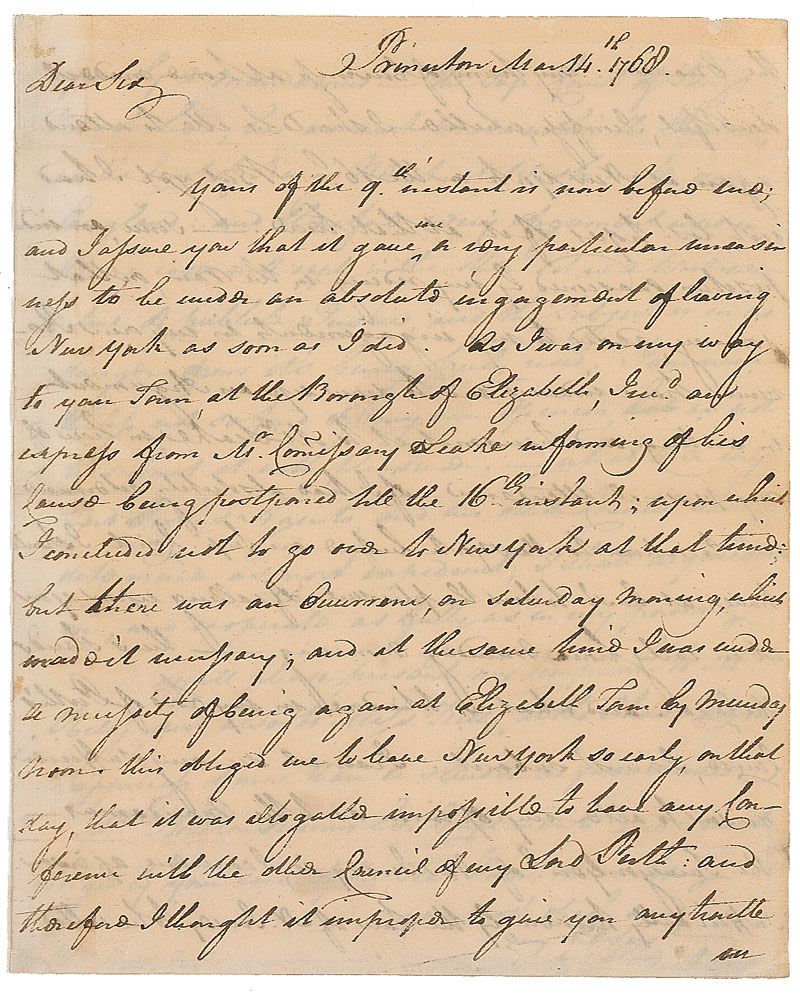 Princeton Mar. 14.th 1768.
Dear Sir
Yours of the 9.th instant is now before me;
and I assure you that it gave me a very particular uneasin
ness to be under an absolute ingagement of leaving
New York as soon as I did. As I was on my way
to your Town, at the Borough of Elizabeth, I rec.d an
express from Mr. Com̃issary Leake informing of his
Cause being postponed till the 16.th instant; upon which
I concluded not to go over to New York at that time;
but there was an Occurrence, on Saturday Morning, which
made it necessary; and at the same time I was under
a necessity of being again at Elizabeth Town by Munday
noon. this obliged me to leave New York so early, on that
day, that it was altogather impossible to have any Con-
ference with the other Council of my Lord Perth: and
therefore I thought it improper to give you any trouble
on